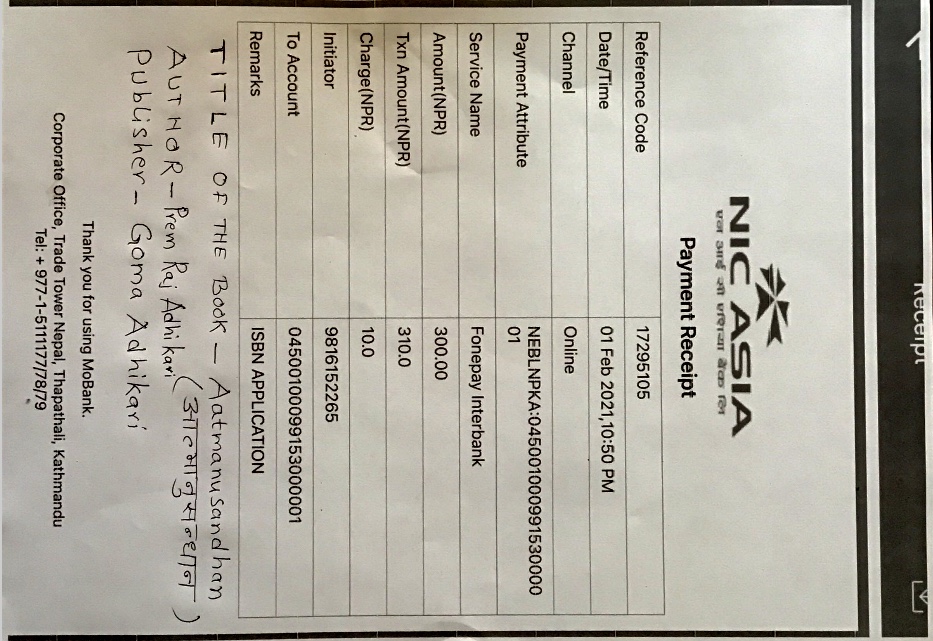 Receipt
NIC ASIA
एन आई सी एशिया बैंक लि
Payment Receipt
Reference Code 17295105
Date/Time 01 Feb 2021,10:50 PM
Channel Online
Payment Attribute NEBLNPKA:0450010009915300000
01
Service Name Fonepay Interbank
Amount(NPR) 300.00
Txn Amount(NPR) 310.0
Charge(NPR) 10.0
Initiator 9816152265
To Account 04500100099153000001
Remarks ISBN APPLICATION
TITLE OF THE BOOK - Aatmanusandhan
(आत्मानुसन्धान)
AUTHOR - Prem Raj Adhikari
Publisher - Goma Adhikari
Thank you for using MoBank.
Corporate Office, Trade Tower Nepal, Thapathali, Kathmandu
Tel: + 977-1-5111177/78/79